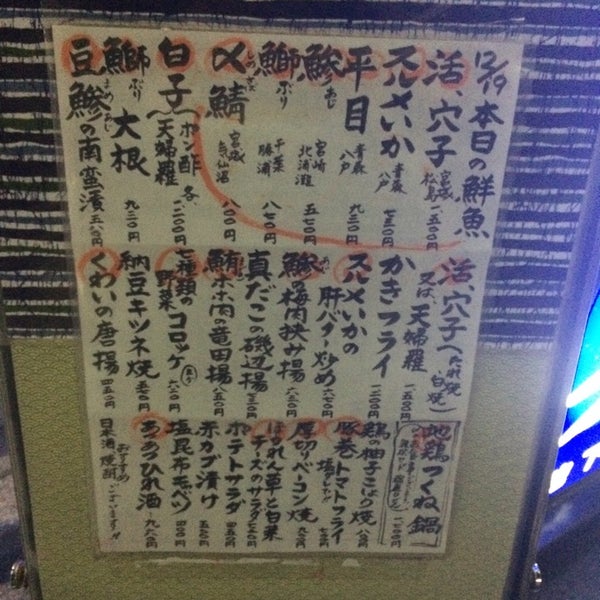 12/19 本日の鮮魚
活〆穴子 宮城 松島 一五〇〇円
スルメいか 青森 八戸 七五〇円
平目 青森 八戸 九三〇円
鯵 あじ 宮崎 北浦灘 五七〇円
鰤 ぶり 千葉 勝浦 八七〇円
〆鯖 宮城 気仙沼 八〇〇円
白子〈ポン酢 天婦羅 各、一二〇〇円
鰤 ぶり 大根 九二〇円
豆鯵 まめあじ の南蛮漬 五八〇円
活〆穴子〈たれ焼 白焼〉
又は、天婦羅 一五〇〇円
かきフライ 一二〇〇円
スルメいかの
肝バター炒め 六七〇円
鯵の梅肉挟み揚 八三〇円
真だこの磯辺揚 七三〇円
鮪ホホ肉の竜田揚 八五〇円
七種類の
野菜コロッケ 六二〇円
納豆キツネ焼 五五〇円
くわいの唐揚 四五〇円
地鶏つくね鍋
一七〇〇円
鶏の柚子こしょう焼
豚巻トマトフライ
厚切りベーコン焼
ほうれん草と白菜
チーズのサラダ
ポテトサラダ 四五〇円
赤カブ漬け 五五〇円
塩昆布キャベツ 四〇〇円
あつあつひれ酒 九八〇円
おすすめ
日本酒、焼酎ございます!!